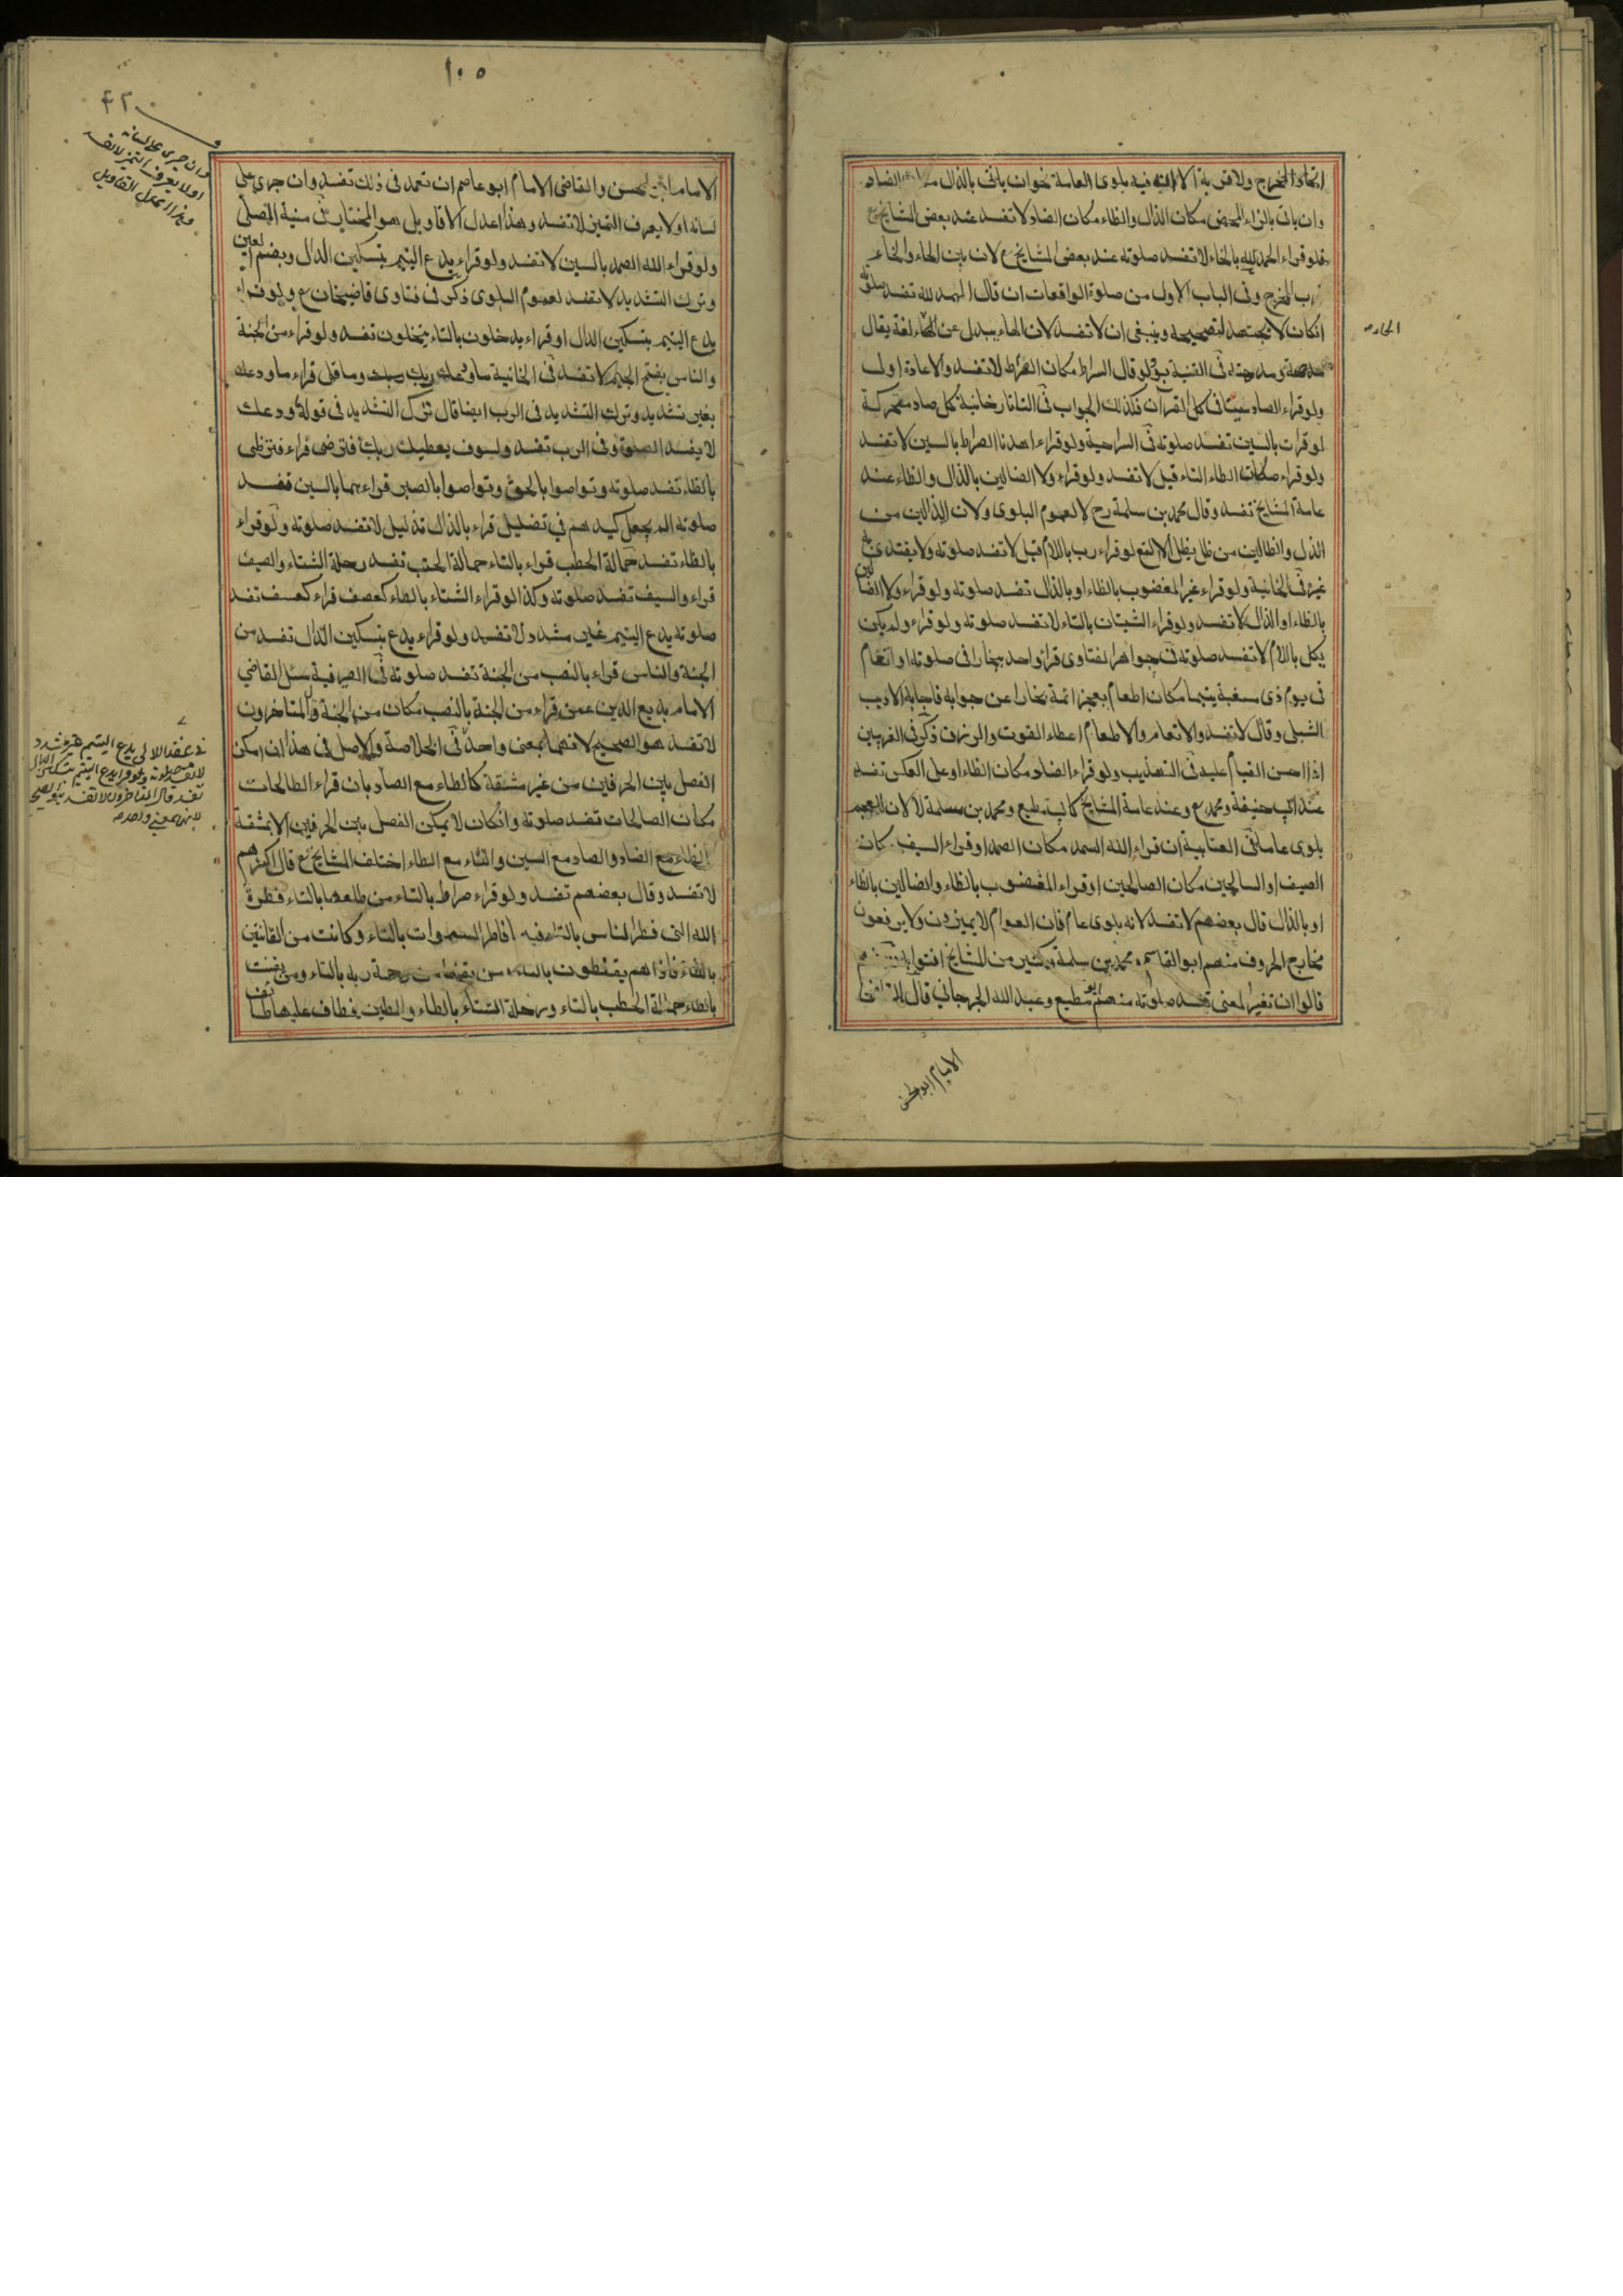 اتحاد المخرج ولا قربة الا ان فيه بلوى العامة نحو ان ياتى بالذال مكان الضاد
وان ياتى بالزاء المحض مكان الذال والظاء مكان الضاد لا تفسد عند بعض المشايخ
فلو قراء الحمد لله بالخاء لا تفسد صلوته عند بعض المشايخ لان بين الحاء والخاء
قرب المخرج وفى الباب الاول من صلوة الواقعات ان قال الهمد لله تفسد صلوته
انكان لا يجتهد لتصحيحه وينبغى ان لا تفسد لان الهاء يبدل عن الحاء لغة يقال
مدحته ومدهته فى القنية ولو قال السراط مكان الصراط لا تفسد والاعادة اولى
ولو قراء الصاد سينا فى كل القرآن فكذلك الجواب فى التاتارخانية كل صاد متحركة
لو قرات بالسين تفسد صلوته فى السراجية ولو قراء اهدنا الصراط بالسين لا تفسد
ولو قراء مكان الطاء التاء قيل لا تفسد ولو قراء ولا الضالين بالذال والظاء عند
عامة المشايخ تفسد وقال محمد بن سلمة رح لا لعموم البلوى ولان الذالين من
الذل والظالين من ظل يظل الالثغ لو قراء رب باللام قيل لا تفسد صلوته ولا يقتدى به
غيره فى الخانية ولو قراء غير المغضوب بالظاء او بالذال تفسد صلوته ولو قراء ولا الضالين
بالظاء او الذال لا تفسد ولو قراء الشيتان بالتاء لا تفسد صلوته ولو قراء ولم يكن
يكل باللام لا تفسد صلوته فى جواهر الفتاوى قراء واحد ببخارا فى صلوته او اتعام
فى يوم ذى مسغبة يتيما مكان اطعام بعجز ائمة بخارا عن جوابه فاجابه الاديب
الشبلى وقال لا تفسد والاتعام والاطعام اعطاء القوت والرزق ذكر فى الغريبين
اذا احسن القيام عليه فى التهذيب ولو قراء الضاد مكان الظاء او على العكس تفسد
عند ابى حنيفة ومحمد وعند عامة المشايخ كابى مطيع ومحمد بن سلمة لا لان للعجم
بلوى عاما فى العتابية ان قراء الله السمد مكان الصمد او قراء السيف مكان
الصيف او السالحين مكان الصالحين او قراء المغضوب بالظاء والضالين بالظاء
او بالذال قال بعضهم لا تفسد لانه بلوى عام فان العوام لا يميزون ولا يعرفون
مخارج الحروف منهم ابو القاسم ومحمد بن سلمة وكثير من المشايخ افتوا به
قالوا ان تغير المعنى تفسد صلوته منهم ابو مطيع وعبد الله الجرجاني قال القاضى
الامام ابو الحسن
الحاء
١٠٥
الامام ابو الحسن والقاضى الامام ابو عاصم ان تعمد فى ذلك تفسد وان جرى على
لسانه او لا يعرف التميز لا تفسد وهذا اعدل الاقاويل هو المختار فى منية المصلى
ولو قراء الله الصمد بالسين لا تفسد ولو قراء يدع اليتيم بتسكين الدال وبضم العين
وترك التشديد لا تفسد لعموم البلوى ذكر فى فتاوى قاضيخان ولو قراء
يدع اليتيم بتسكين الدال او قراء يدخلون بالتاء يتخلون تفسد ولو قراء من الجنة
والناس بفتح الجيم لا تفسد فى الخانية ما ودعك ربك وما قلى قراء ما ودعك
بغير تشديد وترك التشديد فى الرب ايضا قال ترك التشديد فى قوله ودعك
لا يفسد الصلوة وفى الرب تفسد ولسوف يعطيك ربك فترضى قراء فترظى
بالظاء تفسد صلوته وتواصوا بالحق وتواصوا بالصبر قراءهما بالسين تفسد
صلوته الم يجعل كيدهم فى تضليل قراء بالذال تذليل لا تفسد صلوته ولو قراء
بالظاء تفسد حمالة الحطب قراء بالتاء حمالة الحتب تفسد رحلة الشتاء والصيف
قراء والسيف تفسد صلوته وكذا لو قراء الشتاء بالطاء كعصف قراء كعسف تفسد
صلوته يدع اليتيم غير مشدد لا تفسد ولو قراء يدع بتسكين الدال تفسد من
الجنة والناس قراء بالنصب من الجنة تفسد صلوته فى الصيرفية سئل القاضي
الامام بديع الدين عمن قراء من الجنة بالنصب مكان من الجنة قال المتاخرون
لا تفسد هو الصحيح لانهما بمعنى واحد فى الخلاصة والاصل فى هذا ان امكن
الفصل بين الحرفين من غير مشقة كالطاء مع الصاد بان قراء الطالحات
مكان الصالحات تفسد صلوته وانكان لا يمكن الفصل بين الحرفين الا بمشقة
كالظاء مع الضاد والصاد مع السين والتاء مع الطاء اختلف المشايخ قال اكثرهم
لا تفسد وقال بعضهم تفسد ولو قراء صراط بالتاء من طلعها بالتاء فطرة
الله التى فطر الناس بالتاء فيه فاطر السموات بالتاء وكانت من القانتين
بالطاء فاذا هم يقنطون بالتاء من يقنط من رحمة ربه بالتاء ومن يقنت
بالطاء حمالة الحطب بالتاء ورحلة الشتاء بالطاء والطين فطاف عليها طائف
وان جرى على لسانه
او لا يعرف التميز لا تفسد
وهذا اعدل الاقاويل
فى عقد اللآلى يدع اليتيم غير مشدد
لا تفسد صلوته ولو قرا يدع اليتيم بتسكين الدال
تفسد قال المتاخرون لا تفسد هو الصحيح
لانهما بمعنى واحد